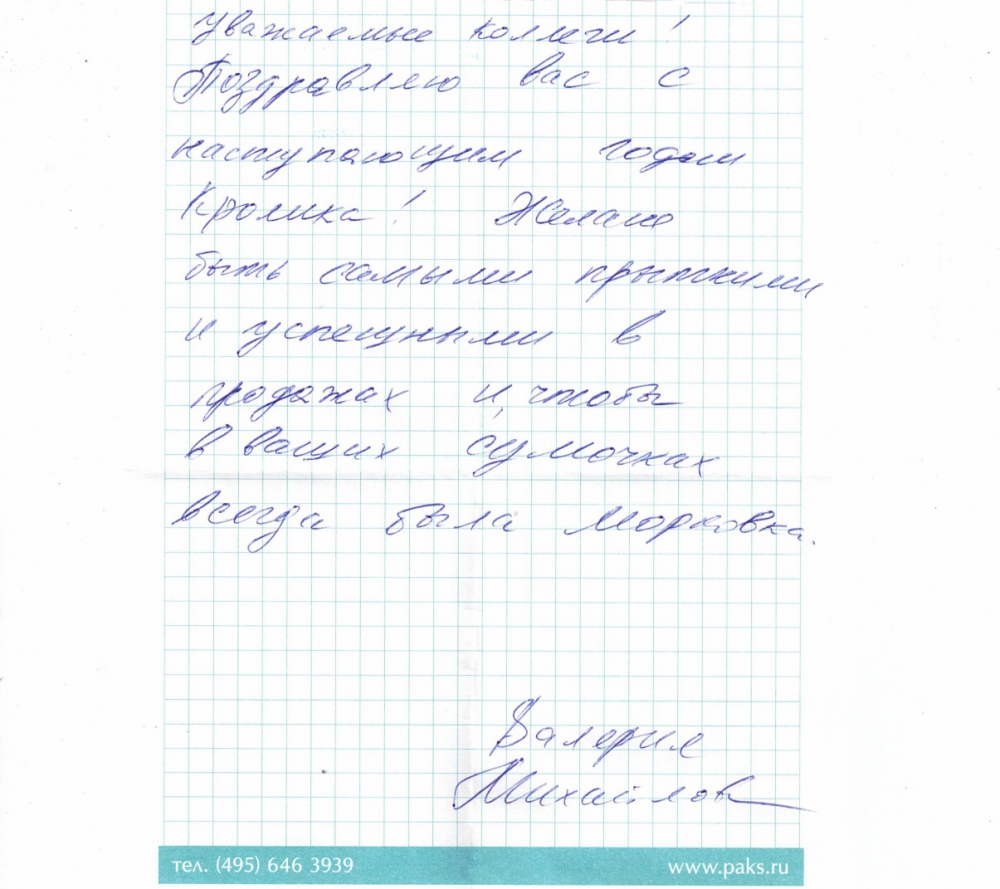 Уважаемые коллеги!
Поздравляю вас с
наступающим годом
Кролика! Желаю
быть самыми прыткими
и успешными в
продажах и, чтобы
в ваших сумочках
всегда была морковка.
Валерия
Михайлова
тел. (495) 646 3939 www.paks.ru